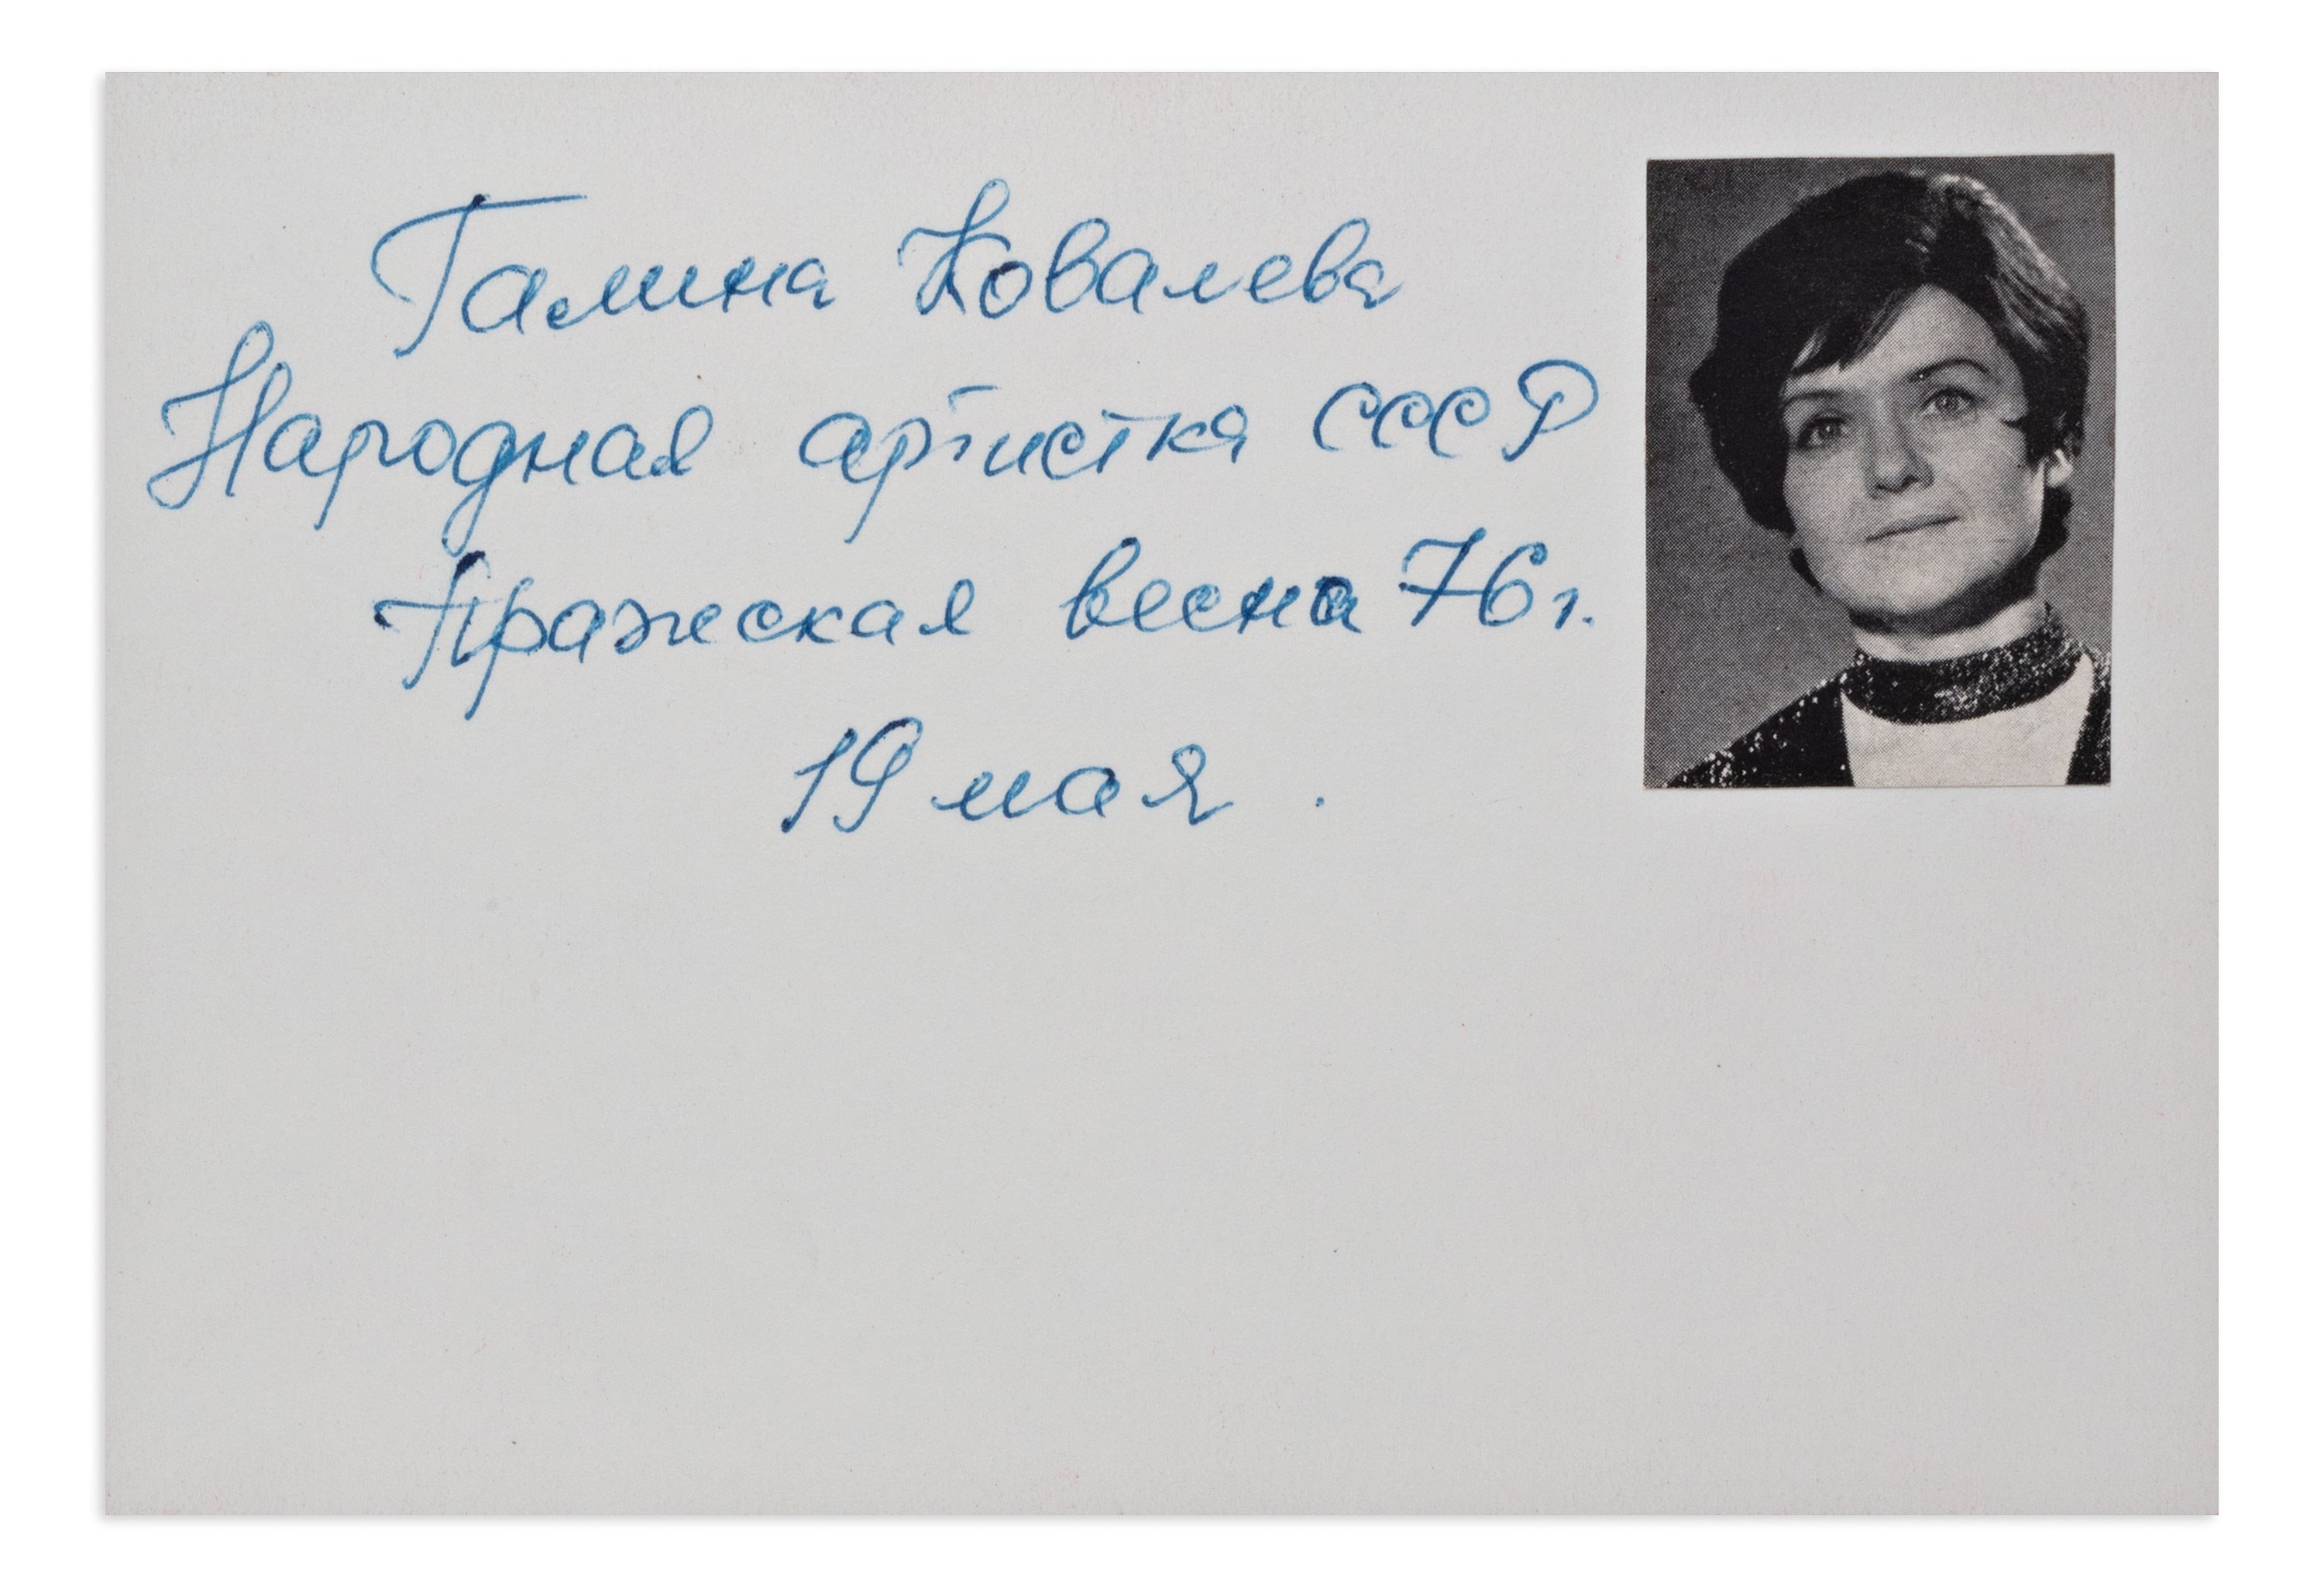 Галина Ковалева
Народная артистка СССР
Пражская весна 76 г.
19 мая.